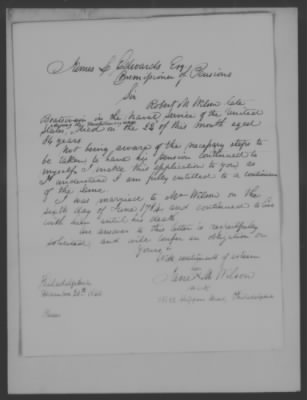 James L. Edwards Esq
Commissioner of Pensions
Sir
Robert M. Wilson late
Boatswain in the Naval Service of the United
States, died on the 22 of this month aged
86 years.
Not being aware of the necessary steps to
be taken to have his pension continued to
myself, I make this application to you as
I understand I am fully entitled to a continuance
of the same
I was married to Mr Wilson on the
sixth day of June and continued to live
with him until his death
an answer to this letter is respectfully
solicited and will confer an obligation on
yours
With sentiments of esteem
Jane M. Wilson
Philadelphia
Philadelphia